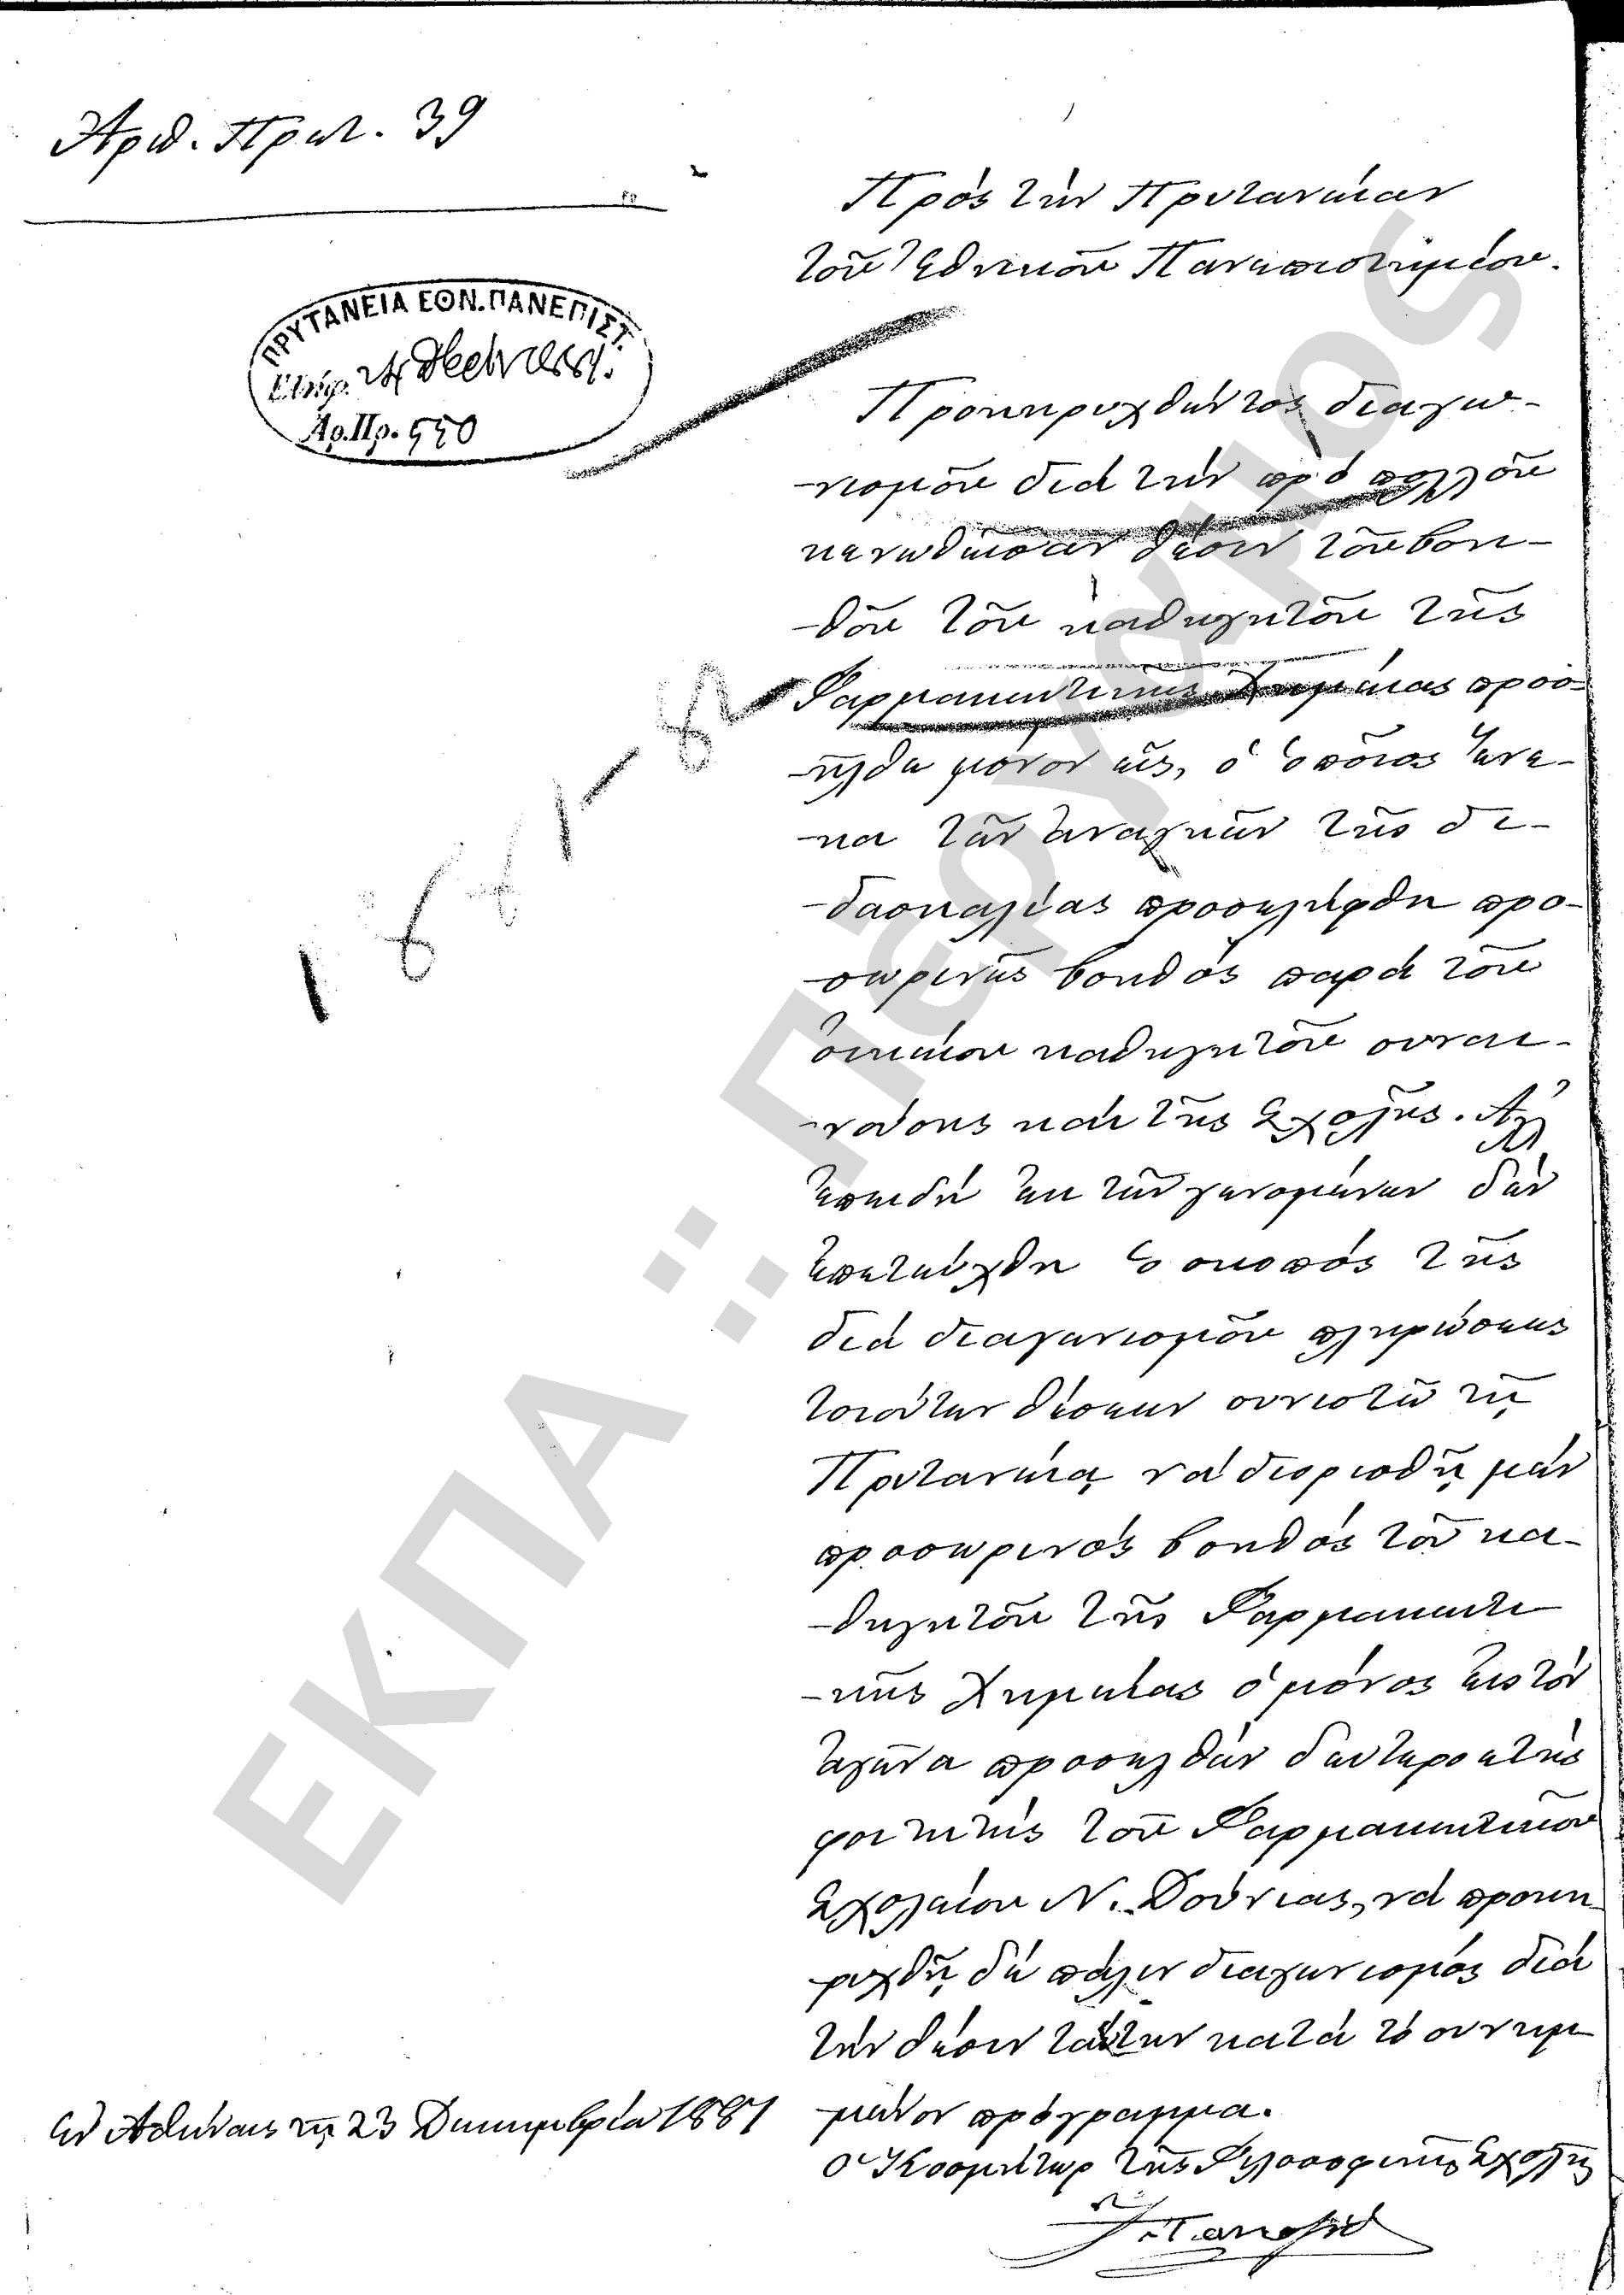 Ἀριθ. Πρωτ. 39
Πρὸς τὴν Πρυτανείαν
τοῦ Ἐθνικοῦ Πανεπιστημίου.
ΠΡΥΤΑΝΕΙΑ ΕΘΝ. ΠΑΝΕΠΙΣΤ.
Ἐλήφ. 24 1881.
Ἀρ. Πρ. 550
Προκηρυχθέντος διαγω-
-νισμοῦ διὰ τὴν πρὸ πολλοῦ
κενωθεῖσαν θέσιν τοῦ βοη-
-θοῦ τοῦ καθηγητοῦ τῆς
Φαρμακευτικῆς Χημείας προσ-
-ῆλθε μόνον εἷς, ὁ ὁποῖος ἕνε-
-κα τῶν ἀναγκῶν τῆς δι-
-δασκαλίας προσελήφθη προ-
-σωρινῶς βοηθὸς παρὰ τοῦ
οἰκείου καθηγητοῦ συναι-
-νούσης καὶ τῆς Σχολῆς. Ἀλλ'
ἐπειδὴ ἐκ τῶν γενομένων δὲν
ἐπετεύχθη ὁ σκοπὸς τῆς
διὰ διαγωνισμοῦ πληρώσεως
τοιούτων θέσεων συνιστῶ τῇ
Πρυτανείᾳ νὰ διορισθῇ μὲν
προσωρινὸς βοηθὸς τοῦ κα-
-θηγητοῦ τῆς Φαρμακευτι
-κῆς Χημείας ὁ μόνος εἰς τὸν
ἀγῶνα προσελθὼν δευτεροετὴς
φοιτητὴς τοῦ Φαρμακευτικοῦ
Σχολείου Ν. Δούνιας, νὰ προκη-
ρυχθῇ δὲ πάλιν διαγωνισμὸς διὰ
τὴν θέσιν ταύτην κατὰ τὸ συνημ
μένον πρόγραμμα.
Ἐν Ἀθήναις τῇ 23 Δεκεμβρίου 1881
Ὁ Κοσμήτωρ τῆς Φιλοσοφικῆς Σχολῆς
1881-82
ΕΚΠΑ :: Πέργαμος